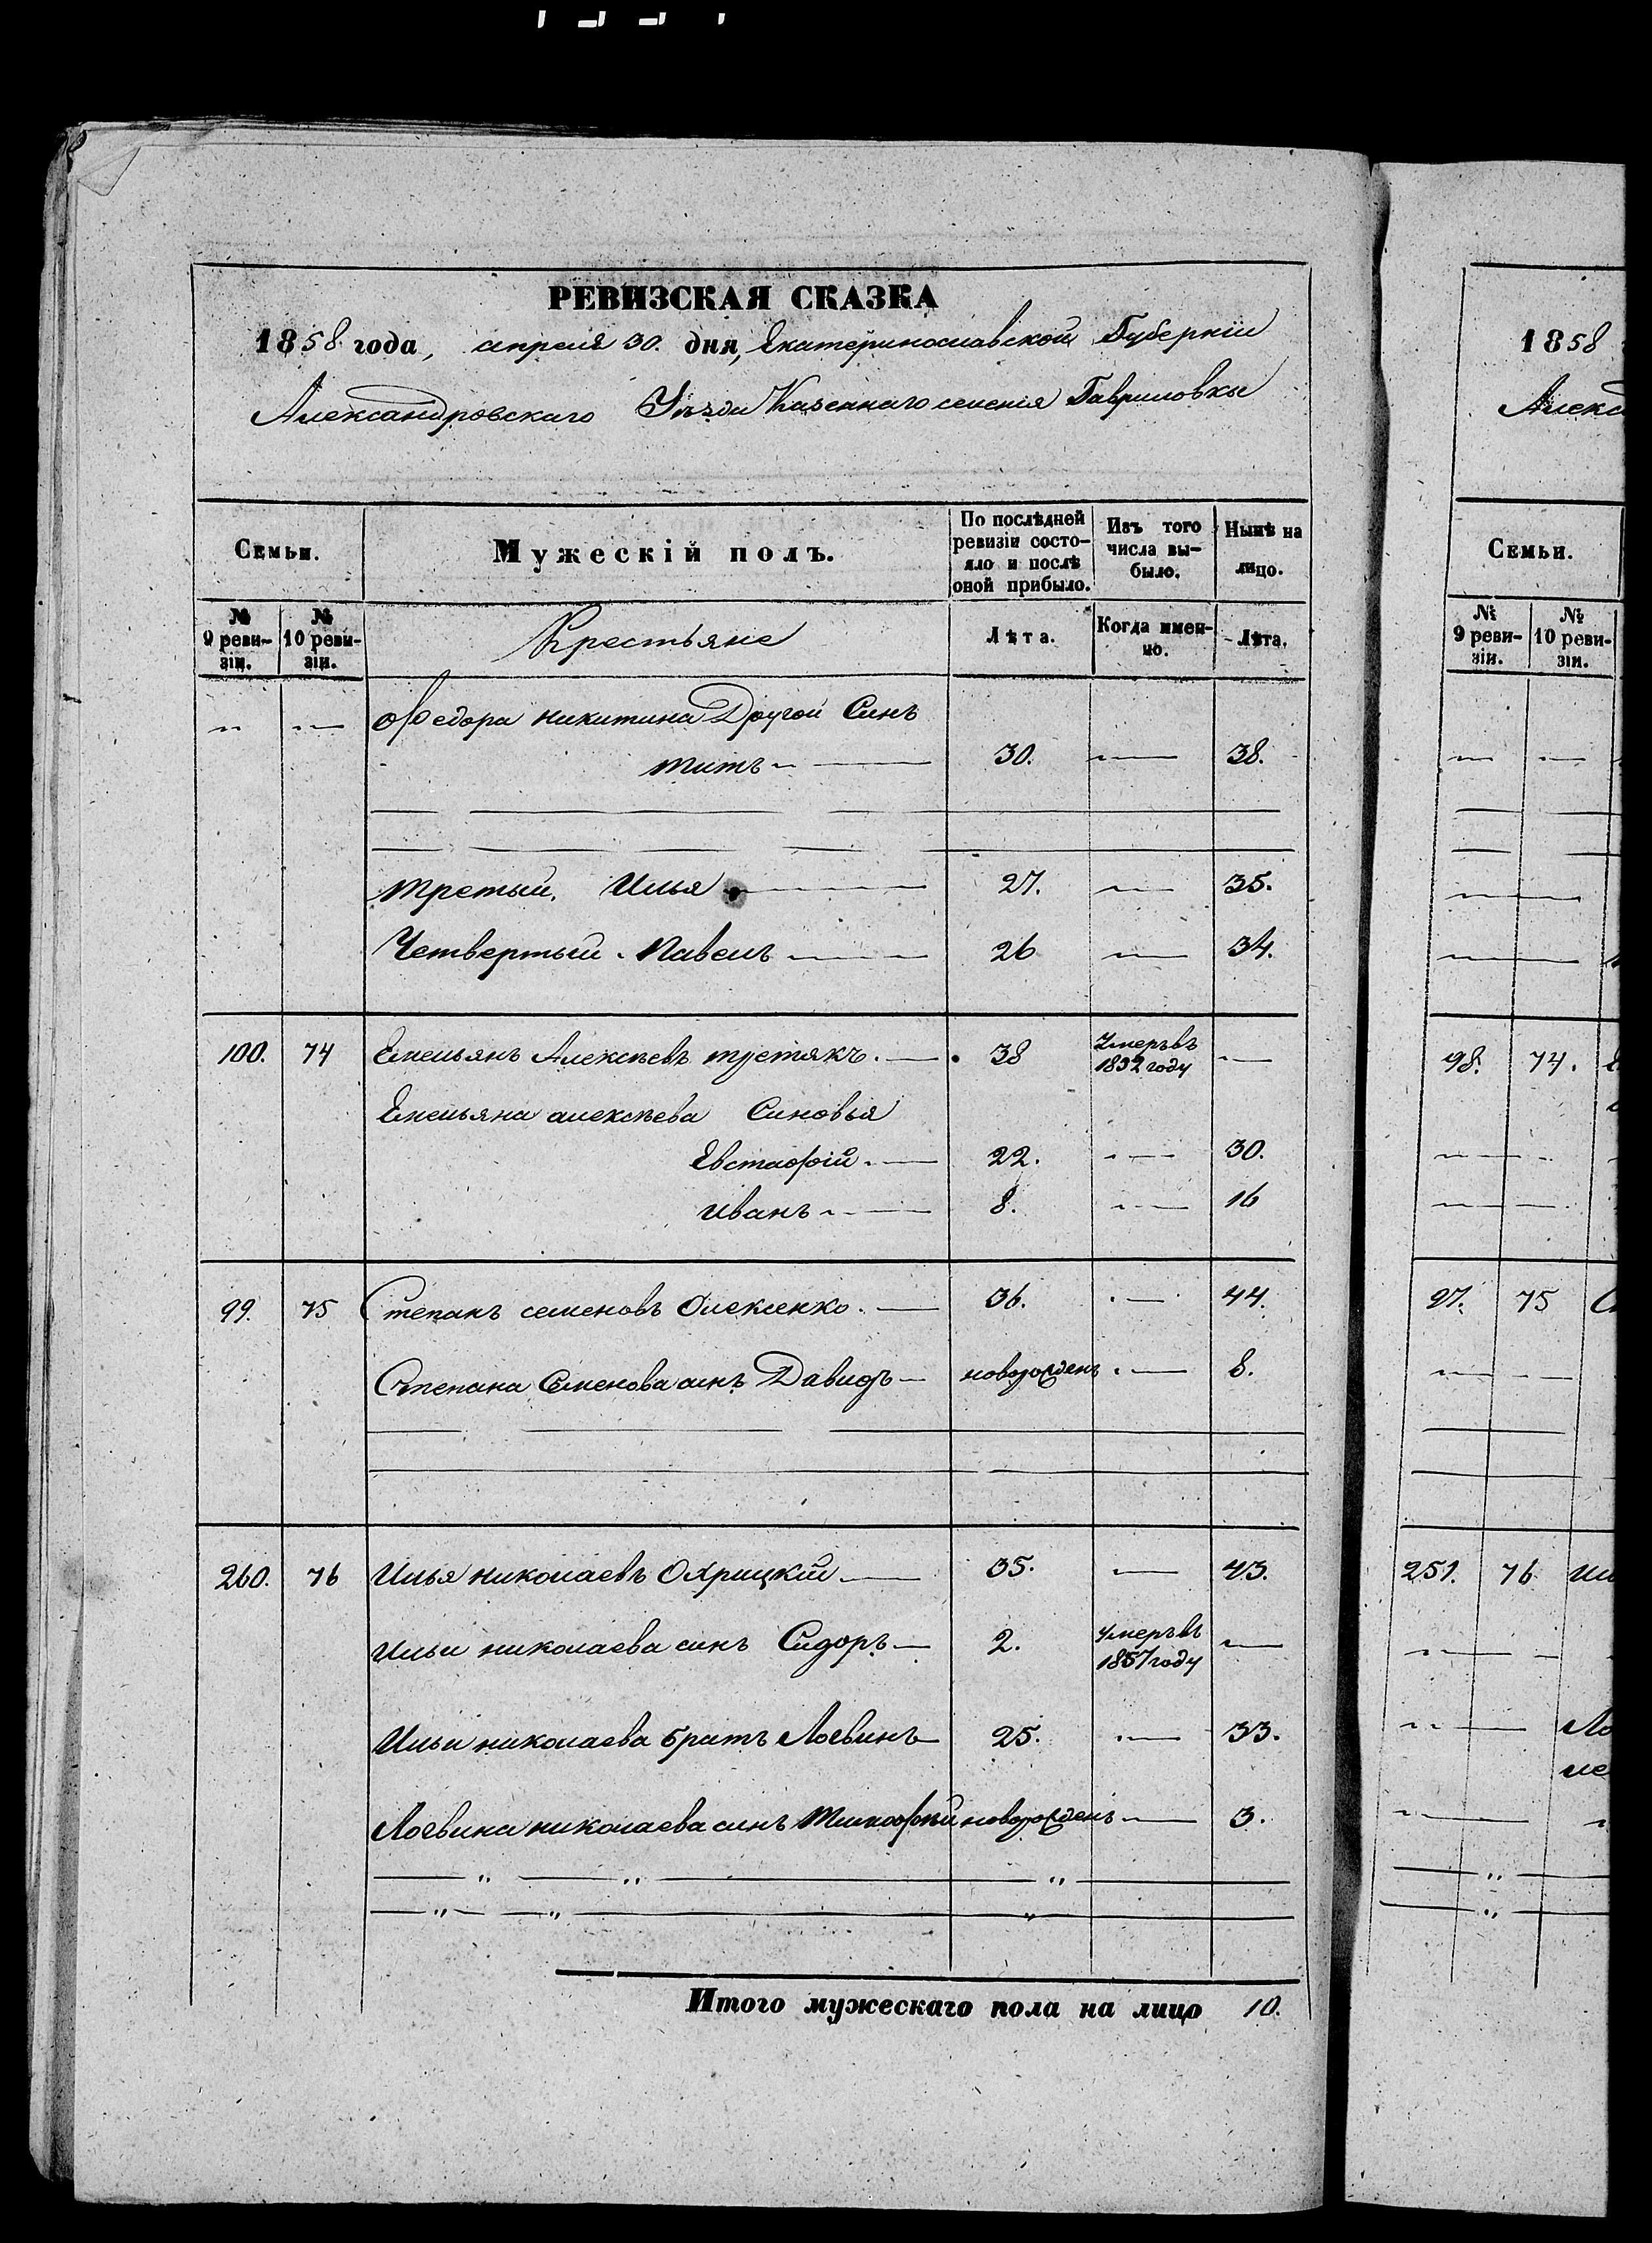 РЕВИЗСКАЯ СКАЗКА
1858 года, апреля 30. дня, Екатеринославской Губерніи
Александровскаго Уѣзда Казеннаго селенія Гавриловки
Семьи.
Мужескій полъ.
По послѣдней ревизіи состо-
яло и послѣ оной прибыло.
Изъ того числа вы-
было.
Нынѣ на лицо.
№ 9 реви-
зіи.
№ 10 реви-
зіи.
Крестьяне
Лѣта.
Когда имен-
но.
Лѣта.
Федора никитина Другой Синъ
титъ 30. 38.
третьий. Илья 27. 35.
Четвертый. Павелъ 26 34.
100. 74 Емельянъ Алексѣевъ 38 Умеръ въ
1852 году
Емельяна алексѣева Синовья
Евстафій 22. 30.
Иванъ 8. 16
99. 75 Степанъ семеновъ Олексенко. 36. 44.
Степана Семенова синъ Давидъ новорожденъ 8.
260. 76 Илья николаевъ Охрицкій 35. 43.
Ильи николаева синъ Сидоръ 2. Умеръ въ
1857 году
Ильи николаева братъ Логвинъ 25. 33.
Логвина николаева синъ Тимофѣй новорожденъ 3.
Итого мужескаго пола на лицо 10.
1858
Алекс
Семьи.
№ 9 реви-
зіи.
№ 10 реви-
зіи.
98. 74.
97. 75
251. 76 Ил
Ло